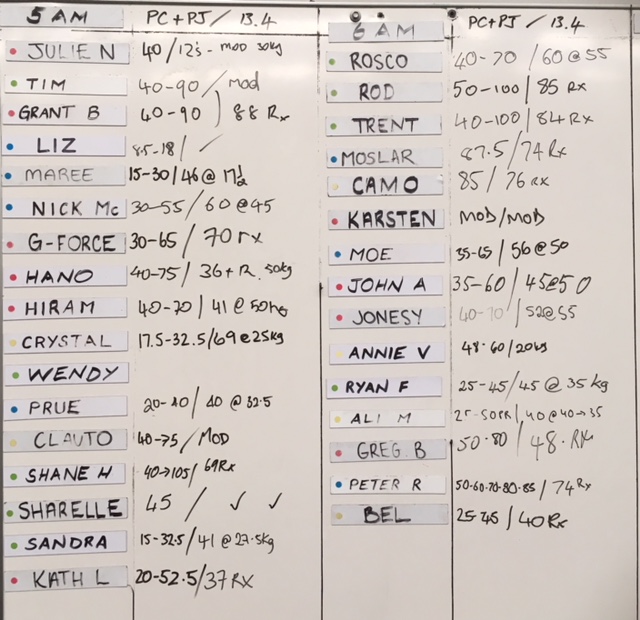 5 AM PC+PJ / 13.4
JULIE N 40/12's - MOD 30kg
TIM 40-90/Mod
GRANT B 40-90) 88 Rx
LIZ 8.5-18/ ✓
MAREE 15-30/46@17½
NICK Mc 30-55/60@45
G-FORCE 30-65/70 rx
HANO 40-75/36+R. 50kg
HIRAM 40-70/41@50kg
CRYSTAL 17.5-32.5/69@25kg
WENDY
PRUE 20-40/40 @ 32.5
CLAUTO 40-75/MOD
SHANE H 40→105/69Rx
SHARELLE 45 / ✓ ✓
SANDRA 15-32.5/41 @27.5kg
KATH L 20-52.5/37 RX
6 AM PC+PJ / 13.4
ROSCO 40-70/60@55
ROD 50-100/85 Rx
TRENT 40-100/84Rx
MOSLAR 87.5/74Rx
CAMO 85/76 RX
KARSTEN MOD/MOD
MOE 35-65/56@50
JOHN A 35-60/45@50
JONESY 40-70/52@55
ANNIE V 48-60/
RYAN F 25-45/45 @ 35 kg
ALI M /40@40→35
GREG B 50-80/48. RX
PETER R 50-60-70-80-85/74Rx
BEL 25-45/40Rx